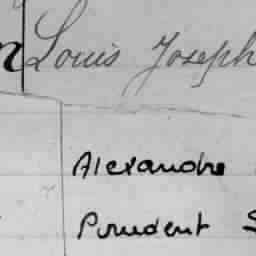 Louis Joseph
Alexandre
Prudent S